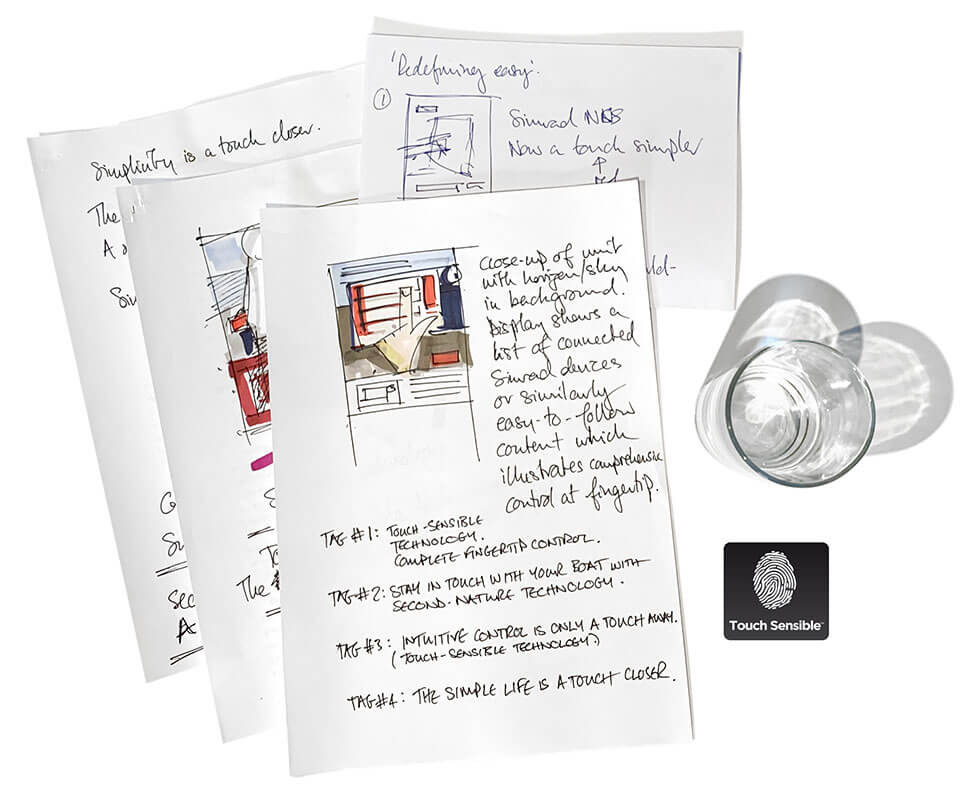 'Redefining easy'.
①
Simrad NSS
Now a touch simpler
Simplicity is a touch closer.
The
A
Close-up of unit
with horizon/sky
in background.
Display shows a
list of connected
Simrad devices
or similarly
easy-to-follow
content which
illustrates comprehensive
control at fingertip.
TAG #1: TOUCH-SENSIBLE
TECHNOLOGY.
COMPLETE FINGERTIP CONTROL.
TAG #2: STAY IN TOUCH WITH YOUR BOAT WITH
SECOND-NATURE TECHNOLOGY.
TAG #3: INTUITIVE CONTROL IS ONLY A TOUCH AWAY.
(TOUCH-SENSIBLE TECHNOLOGY?)
TAG #4: THE SIMPLE LIFE IS A TOUCH CLOSER.
The
Touch Sensible™